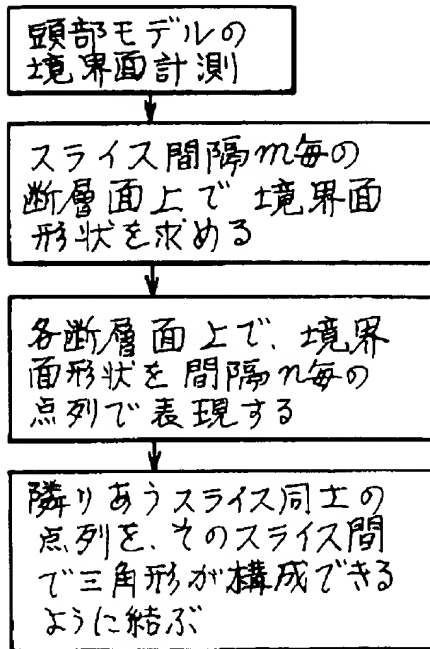 頭部モデルの
境界面計測
スライス間隔m毎の
断層面上で 境界面
形状を求める
各断層面上で、境界
面形状を間隔n毎の
点列で表現する
隣りあうスライス同士の
点列を、そのスライス間
で三角形が構成できる
ように結ぶ